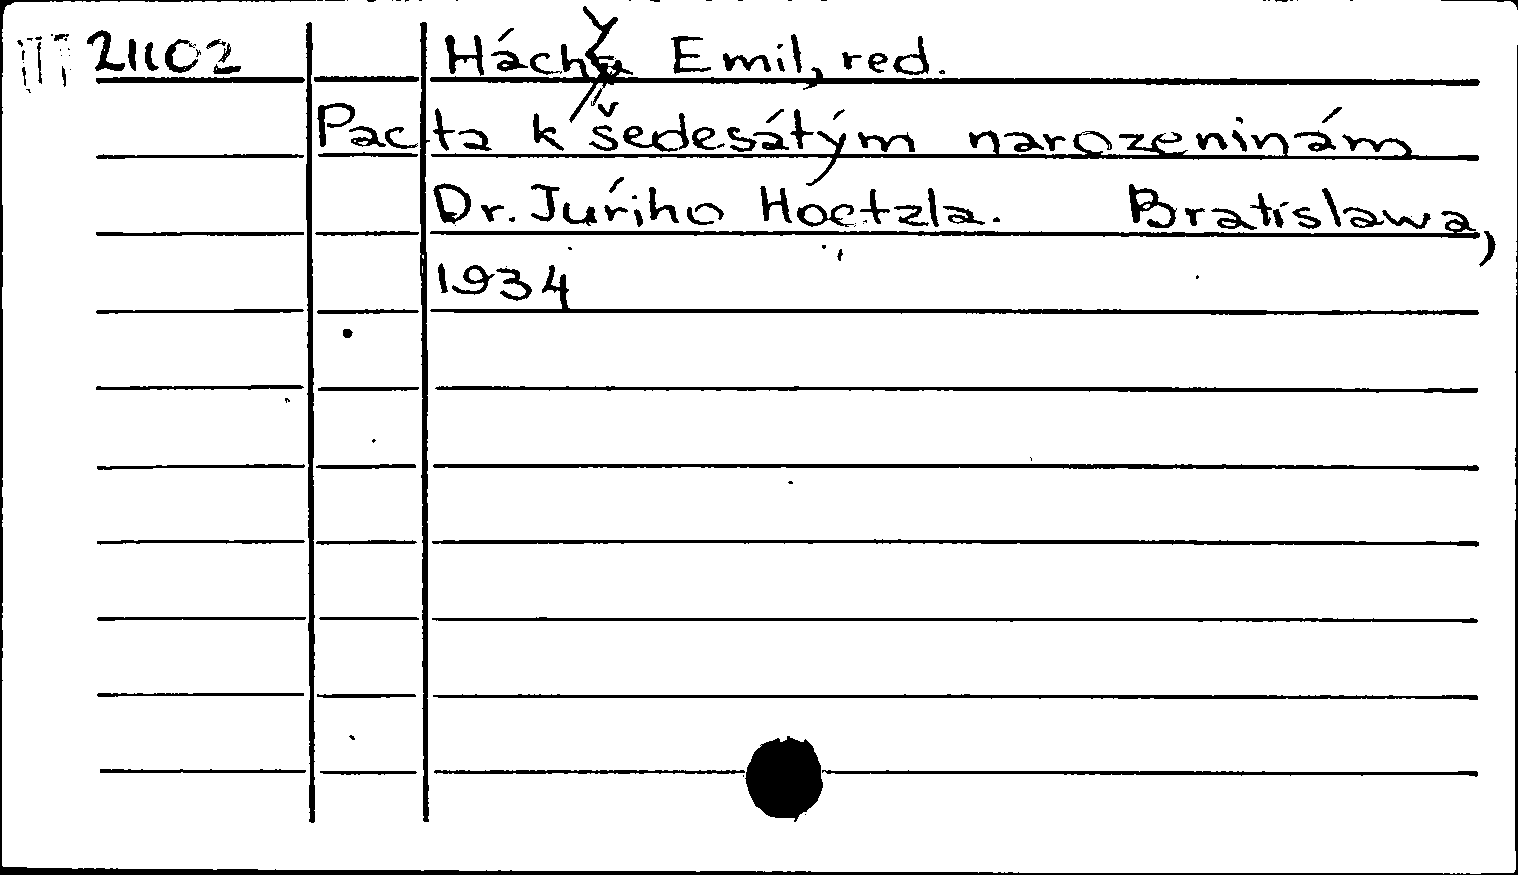 III 21102 Háchy Emil, red.
Pacta k šedesátým narozeninám
Dr. Juŕiho Hoetzla. Bratislawa,
1934